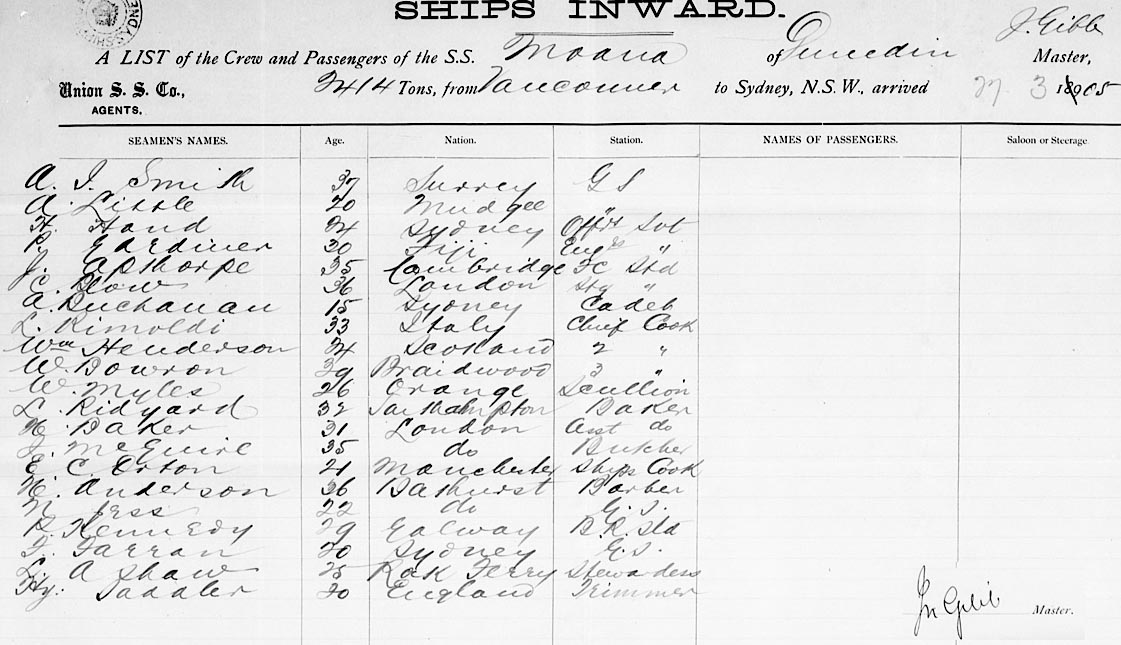 SHIPS INWARD.
J. Gibb
A LIST of the Crew and Passengers of the S.S. Moana of Dunedin Master,
Union S. S. Co., 2414 Tons, from Vancouver to Sydney, N.S.W., arrived 27 3 1905
AGENTS.
SEAMEN'S NAMES. Age. Nation. Station. NAMES OF PASSENGERS. Saloon or Steerage.
A. I. Smith 37 Surrey G S
A. Little 20 Mudgee "
H. Hand 24 Sydney Offrs Svt
P. Gardiner 30 Fiji Engrs "
J. Apthorpe 35 Cambridge Std
C. Blow 36 London "
A. Buchanan 15 Sydney Cadet
L. Rimoldi 33 Italy Chief Cook
Wm Henderson 24 Scotland 2 "
W. Bowron 39 Braidwood 3 "
W. Myles 26 Orange Scullion
L. Ridyard 32 Southampton Baker
H. Baker 31 London Asst do
McGuire 35 do Butcher
E. C. Orton 21 Manchester Ships Cook
H. Anderson 36 Bathurst Barber
N. Jess 22 do G.S.
P. Kennedy 29 Galway B.R. Std
F. Farran 20 Sydney G.S.
A Shaw 25 Rock Ferry Stewardess
Hy. Saddler 20 England Trimmer
Jn Gibb Master.